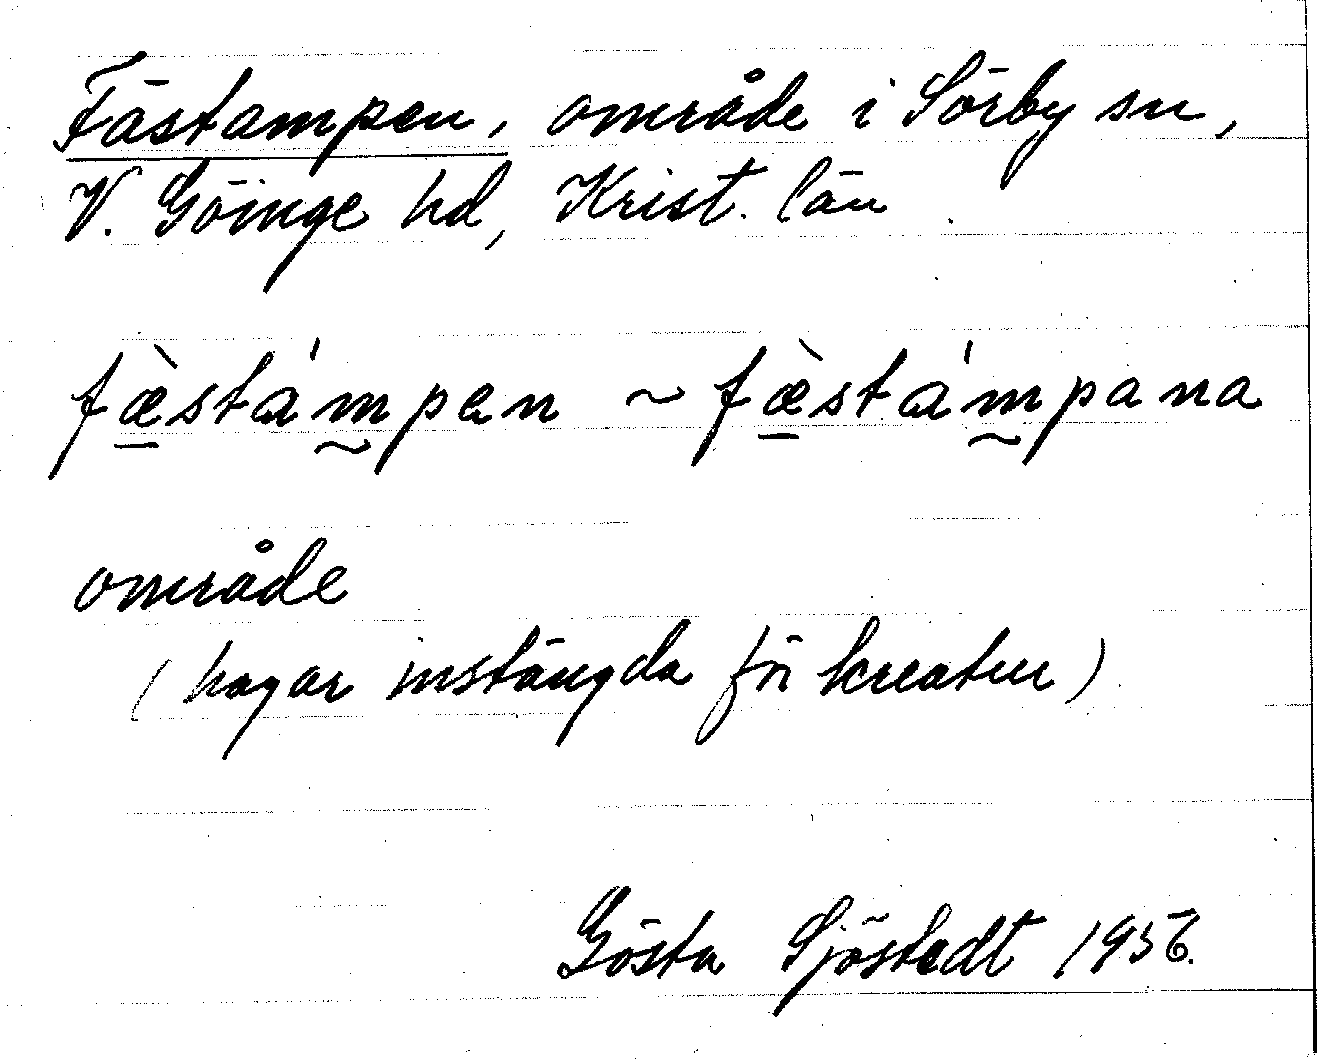 Fästampen, område i Sörby sn,
V. Göinge hd, Krist. län
fæ̀stámpen ~ fæ̀stámpana
område
(hagar instängda för kreatur)
Gösta Sjöstedt 1956.